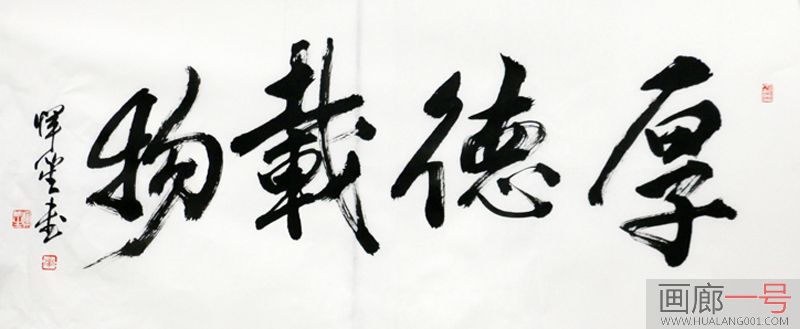 厚德載物
画廊一号
WWW.HUALANG001.COM